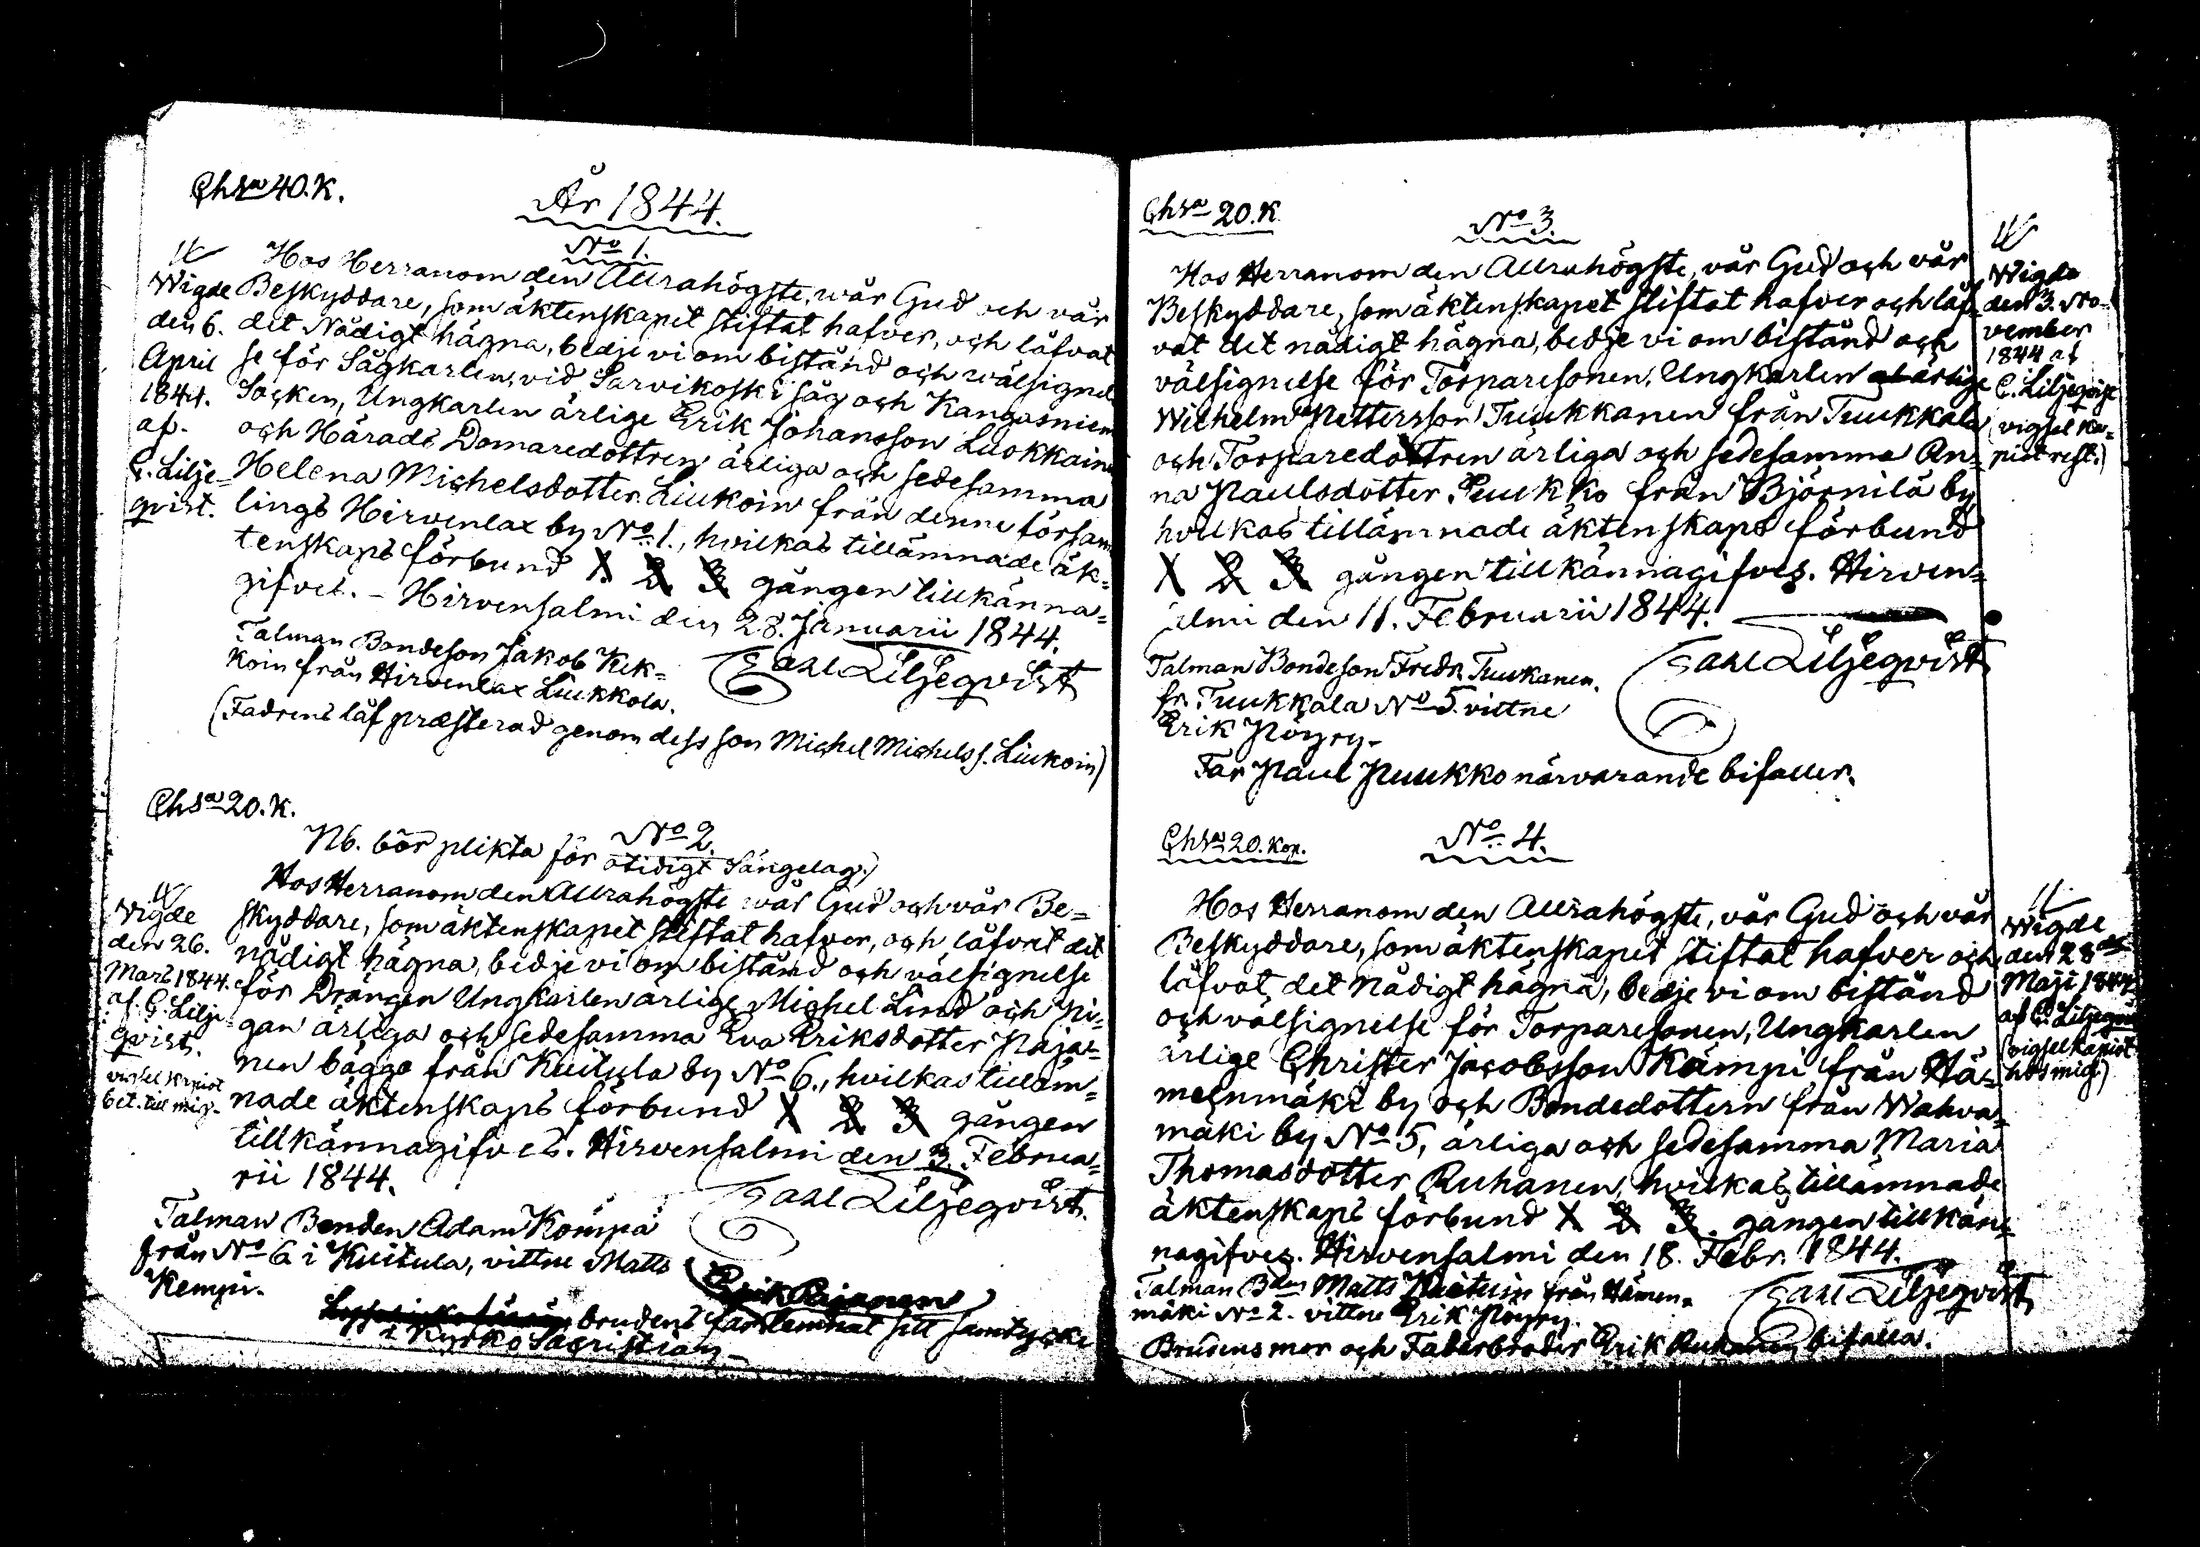 Chsa 40. K.
År 1844.
No 1.
Hos Herranom den Allrahögste, wår Gud och vår
Beskyddare, som äktenskapet stiftat hafver, och låfvat
det Nådigt hägna, bedje vi om bistånd och wälsignel
se för Sågkarlen, vid Sarvikoski såg och Kangasniemi
Socken, Ungkarlen ärlige Erik Johansson Luokkain
och Härads Domaredottren ärliga och sedesamma
Helena Michelsdotter Liukoin från denne försam
lings Hirvenlax by No 1., hvilkas tillämnade äk=
tenskaps förbund 1 2 3 gången tillkänna=
gifves. - Hirvensalmi den 28. Januarii 1844.
Carl Liljeqvist
Wigde
den 6.
April
1844.
af
C. Lilje=
qvist.
Talman Bondeson Jakob Kek=
koin från Hirvenlax Liukkola.
(Fadrens låf præsterad genom dess son Michel Michels s. Liukoin)
Chsa 20. K.
No 2.
Nb. bör plikta för otidigt Sängelag.)
Hos Herranom den Allrahögste wår Gud och vår Be=
skyddare, som äktenskapet stiftat hafver, och låfvat det
nådigt hägna, bedje vi om bistånd och välsignelse
för Drängen Ungkarlen ärlige Michel Lind och Pi=
gan ärliga och sedesamma Eva Eriksdotter Paja=
nen bägge från Kuitula by No 6., hvilkas tilläm=
nade äktenskaps förbund 1 2 3 gången
tillkännagifves. Hirvensalmi den 3. Februa=
rii 1844.
Carl Liljeqvist.
Wigde
den 26.
Mars 1844.
af C. Lilje
qvist.
vigsel kapiot
bet. till mig.
Talman Bonden Adam Kompa
från No 6 i Kuitula, vittne Matts
Kempi.
Erik Pajanen
brudens far lemnat sitt samtycke
i Kyrko Sacristian
Chsa 20. K
No 3.
Hos Herranom den Allrahögste, vår Gud och vår
Beskyddare, som äktenskapet stiftat hafver och låf=
vat det nådigt hägna, bedje vi om bistånd och
välsignelse för Torparesonen, Ungkarlen ärlige
Wilhelm Pettersson Tuukkanen från Tuukkala
och Torparedottren ärliga och sedesamma An=
na Paulsdotter Puukko från Björnilä by
hvilkas tillämnade äktenskaps förbund
1 2 3 gången tillkännagifves. Hirven=
salmi den 11. Februarii 1844.
Carl Liljeqvist
Wigde
den 3. No=
vember
1844 af
C. Liljeqvist
(vigsel ka=
piot rest.)
Talman Bondeson Fredr. Tuukanen.
fr. Tuukkala No 5. vittne
Erik Pöyry.
Far Paul Puukko närvarande bifaller.
Chsa 20. Kop.
No 4.
Hos Herranom den Allrahögste, vår Gud och vår
Beskyddare, som äktenskapet stiftat hafver och
låfvat det nådigt hägna, bedje vi om bistånd
och välsignelse för Torparesonen, Ungkarlen
ärlige Christer Jacobsson Kämpi från Hä=
menmäki by och Bondedottern från Wahva=
mäki by No 5, ärliga och sedesamma Maria
Thomasdotter Ruhanen, hvilkas tillämnade
äktenskaps förbund 1 2 3 gången tillkän=
nagifves. Hirvensalmi den 18. Febr. 1844.
Carl Liljeqvist
Wigde
den 28de
Maji 1844
af C. Liljeqvist
(vigsel kapiot
hos mig.)
Talman Bden Matts Kuituin från Hämen=
mäki No 2. vittne Erik Pöyry.
Brudens mor och Faderbroder Erik Ruhanen bifalla.